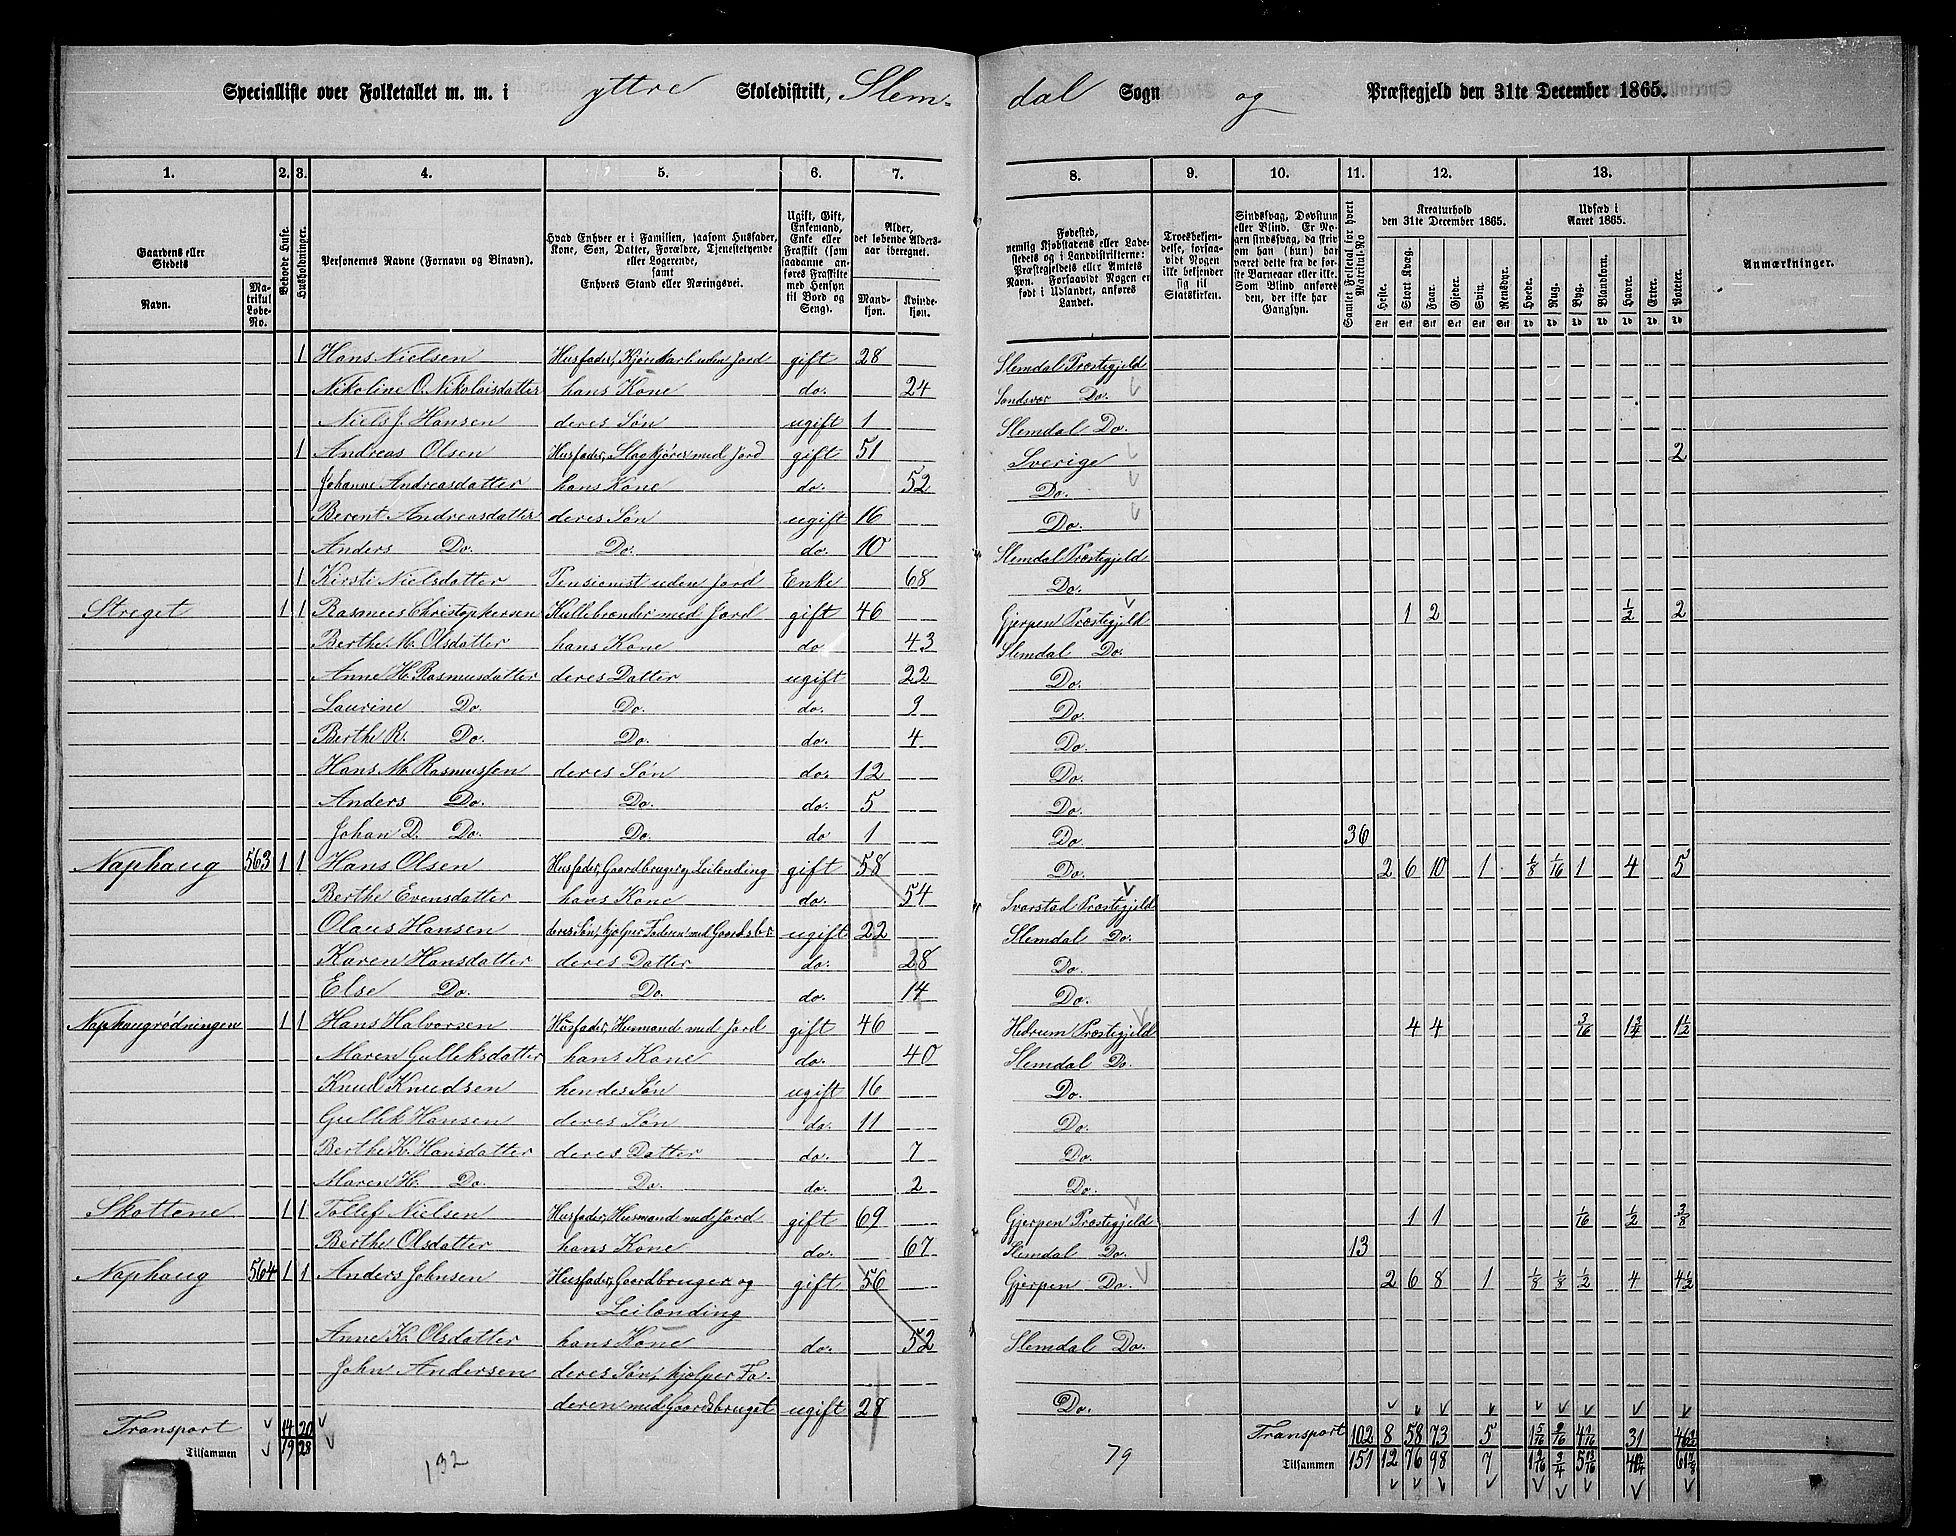 Specialliste over Folketallet m. m. i yttre Skoledistrikt, Slemdal Sogn og Præstegjeld den 31te December 1865.
1. 2. 3. 4. 5. 6. 7. 8. 9. 10. 11. 12. 13.
Gaardens eller Stedets Navn. Matrikul Løbe-No. Beboede Huse. Husholdninger. Personernes Navne (Fornavn og Binavn). Hvad Enhver er i Familien, saasom Husfader, Kone, Søn, Datter, Forældre, Tjenestetyende eller Logerende, samt Enhvers Stand eller Næringsvei. Ugift, Gift, Enkemand, Enke eller Fraskilt (som saadanne anføres Fraskilte med Hensyn til Bord og Seng). Alder, det løbende Aldersaar iberegnet. Mandkjøn. Kvindekjøn.
Fødested, nemlig Kjøbstadens eller Ladestedets eller i Landdistrikterne: Præstegjeldets eller Amtets Navn. Forsaavidt Nogen er født i Udlandet, anføres Landet. Troesbekjendelse, forsaavidt Nogen ikke bekjender sig til Statskirken. Sindssvag, Døvstum eller Blind. Er Nogen sindssvag, da skriv om han (hun) har været dette fra de første Barneaar eller ikke. Som Blind anføres den, der ikke har Gangsyn. Samlet Folketal for hvert Matrikul-No Kreaturhold den 31te December 1865. Heste. Stort Kvæg. Faar. Gjeder. Svin. Rensdyr. Udsæd i Aaret 1865. Hvede. Rug. Byg. Blandkorn. Havre. Erter. Poteter. Anmærkninger.
1 Hans Nielsen Husfader, Kjørekarl uden Jord gift 28 Slemdal Præstegjeld
Nikoline O. Nikolaisdatter hans Kone do. 24 Sandsvær Do.
Niels J. Hansen deres Søn ugift 1 Slemdal Do.
1 Andreas Olsen Husfader, Slagkjører med Jord gift 51 Sverige 2
Johanne Andreasdatter hans Kone do. 52 Do.
Berent Andreasdatter deres Søn ugift 16 Do.
Anders Do. Do. do. 10 Slemdal Præstegjeld
1 Kirsti Nielsdatter Pensionist uden Jord Enke 68 Do.
Streget 1 1 Rasmus Christophersen Kullebrænder med Jord gift 46 Gjerpen Præstegjeld 1 2 1/2 2
Berthe M. Olsdatter hans Kone do 43 Slemdal Do.
Anne H. Rasmusdatter deres Datter ugift 22 Do.
Laurine Do. Do. do. 9 Do.
Berthe R. Do. Do. do. 4 Do.
Hans M. Rasmussen deres Søn do. 12 Do.
Anders Do. Do. do. 5 Do.
Johan D. Do. Do. do 1 Do 36
Naphaug 563 1 1 Hans Olsen Husfader, Gaardbruger og Leilending gift 58 Do. 2 6 10 1 1/8 1/16 1 4 5
Berthe Evensdatter hans Kone do. 54 Svarstad Præstegjeld
Olaus Hansen deres Søn, hjelper Faderen med Gaardsbr ugift 22 Slemdal Do.
Karen Hansdatter deres Datter do. 28 Do.
Else Do. Do. do. 14 Do.
Naphaugrødningen 1 1 Hans Halvorsen Husfader, Husmand med Jord gift 46 Hedrum Præstegjeld 4 4 3/16 1 3/4 1 1/2
Maren Gulleksdatter hans Kone do. 40 Slemdal Do.
Knud Knudsen hendes Søn ugift 16 Do.
Gullik Hansen deres Søn do. 11 Do.
Berthe K. Hansdatter deres Datter do. 7 Do.
Maren H. Do. Do. do. 2 Do.
Skottene 1 1 Tollef Nielsen Husfader, Husmand med Jord gift 69 Gjerpen Præstegjeld 1 1 1/16 1/2 3/8
Berthe Olsdatter hans Kone do. 67 Slemdal Do. 13
Naphaug 564 1 1 Anders Johnsen Husfader, Gaardbruger og gift 56 Gjerpen Do. 2 6 8 1 1/8 1/8 1/2 4 4 1/2
Leilending
Anne K. Olsdatter hans Kone do. 52 Slemdal Do.
John Andersen deres Søn, hjelper Fa-
deren med Gaardsbruget ugift 28 Do.
Transport 14 20 Transport 102 8 58 73 5 31
Tilsammen 19 28 Tilsammen 151 12 76 98 7
132 79